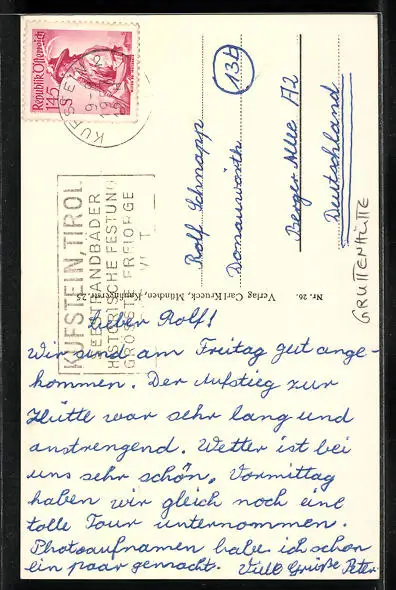 Republik Österreich
1.45
KUFSTEIN
KUFSTEIN, TIROL
SEESTRANDBÄDER
HISTORISCHE FESTUNG
GRÖSSTE FREIORGE
(13b)
Rolf Schnapp
Donauwörth
Berger Allee 72
Deutschland
GRUTTENHÜTTE
Nr. 26. Verlag Carl Krueck, München, Kapuzinerstr. 25
Lieber Rolf!
Wir sind am Freitag gut ange-
kommen. Der Aufstieg zur
Hütte war sehr lang und
anstrengend. Wetter ist bei
uns sehr schön. Vormittag
haben wir gleich noch eine
tolle Tour unternommen.
Photoaufnamen habe ich schon
ein paar gemacht. Viele Grüße Peter